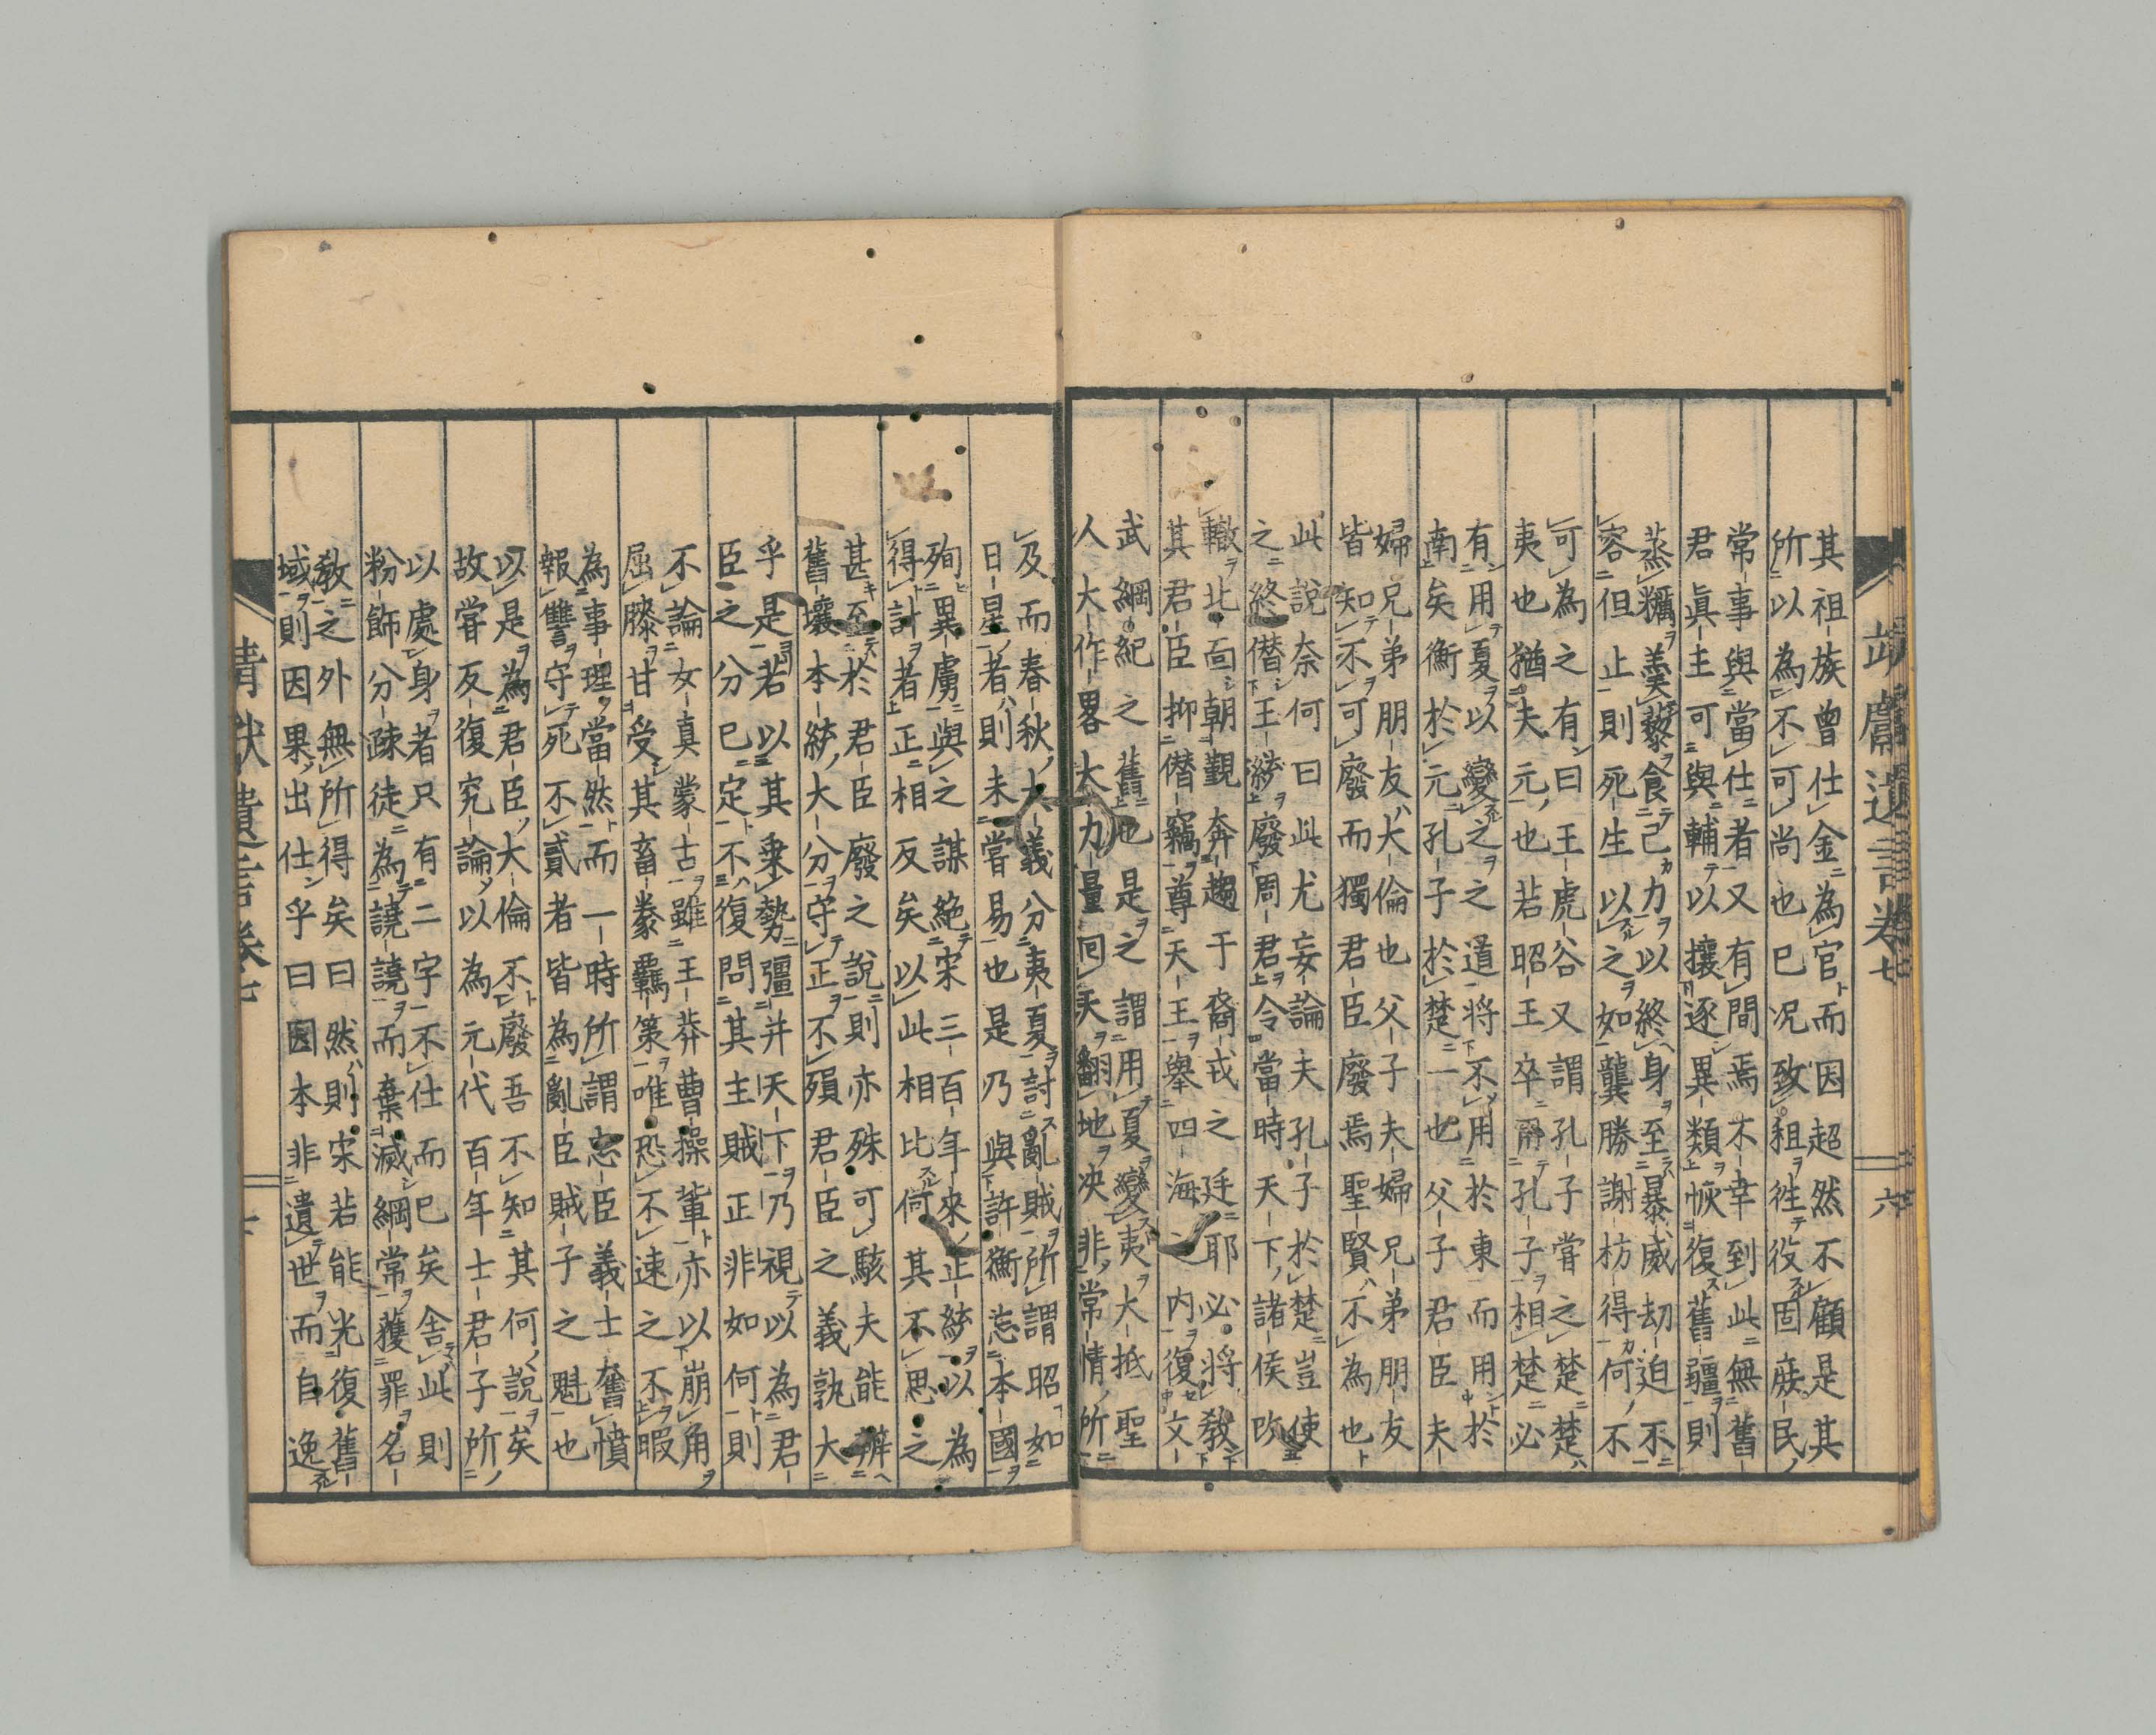 其祖族曾仕金為官而因超然不顧是其
所以為不可尚也已況致祖徃役固庶民
常事與當仕者又有間焉不幸到此無舊
君眞主可與輔以攘逐異類恢復舊疆則
蒸糲羹藜食己力以終身至暴威刧迫不
容但止則死生以之如龔勝謝枋得何不
可為之有曰王虎谷又謂孔子嘗之楚楚
夷也猶夫元也若昭王卒用孔子相楚必
有用夏以變之之道將不用於東而用於
南矣衡於元孔子於楚一也父子君臣夫
婦兄弟朋友大倫也父子夫婦兄弟朋友
皆知不可廢而獨君臣廢焉聖賢不為也
此說奈何曰此尤妄論夫孔子於楚豈使
之終僭王統廢周君令當時天下諸侯改
轍北面朝覲奔趨于裔戎之廷耶必將敎
其君臣抑僭竊尊天王舉四海之内復文
武綱紀之舊也是之謂用夏變夷大抵聖
人大作畧大力量回天翻地決非常情所
及而春秋大義分夷夏討亂賊所謂昭如
日星者則未嘗易也是乃與許衡忘本國
殉異虜與之謀絶宋三百年來正統以為
得計者正相反矣以此相比何其不思之
甚至於君臣廢之說則亦殊可駭夫能辨
舊壤本統大分守正不殞君臣之義孰大
乎是若以其乗勢彊并天下乃視以為君
臣之分已定不復問其主賊正非如何則
不論女真蒙古雖王莽曹操輩亦以崩角
屈膝甘受其畜豢羈策唯恐不速之不暇
為事理當然而一時所謂忠臣義士奮憤
報讐守死不貳者皆為亂臣賊子之魁也
以是為君臣大倫不廢吾不知其何說矣
故嘗反復究論以為元代百年士君子所
以處身者只有二字不仕而已矣舍此則
粉飾分疎徒為譊譊而棄滅綱常獲罪名
敎之外無所得矣曰然則宋若能光復舊
域則因果出仕乎曰因本非遺世而自逸
靖獻遺言卷七
六